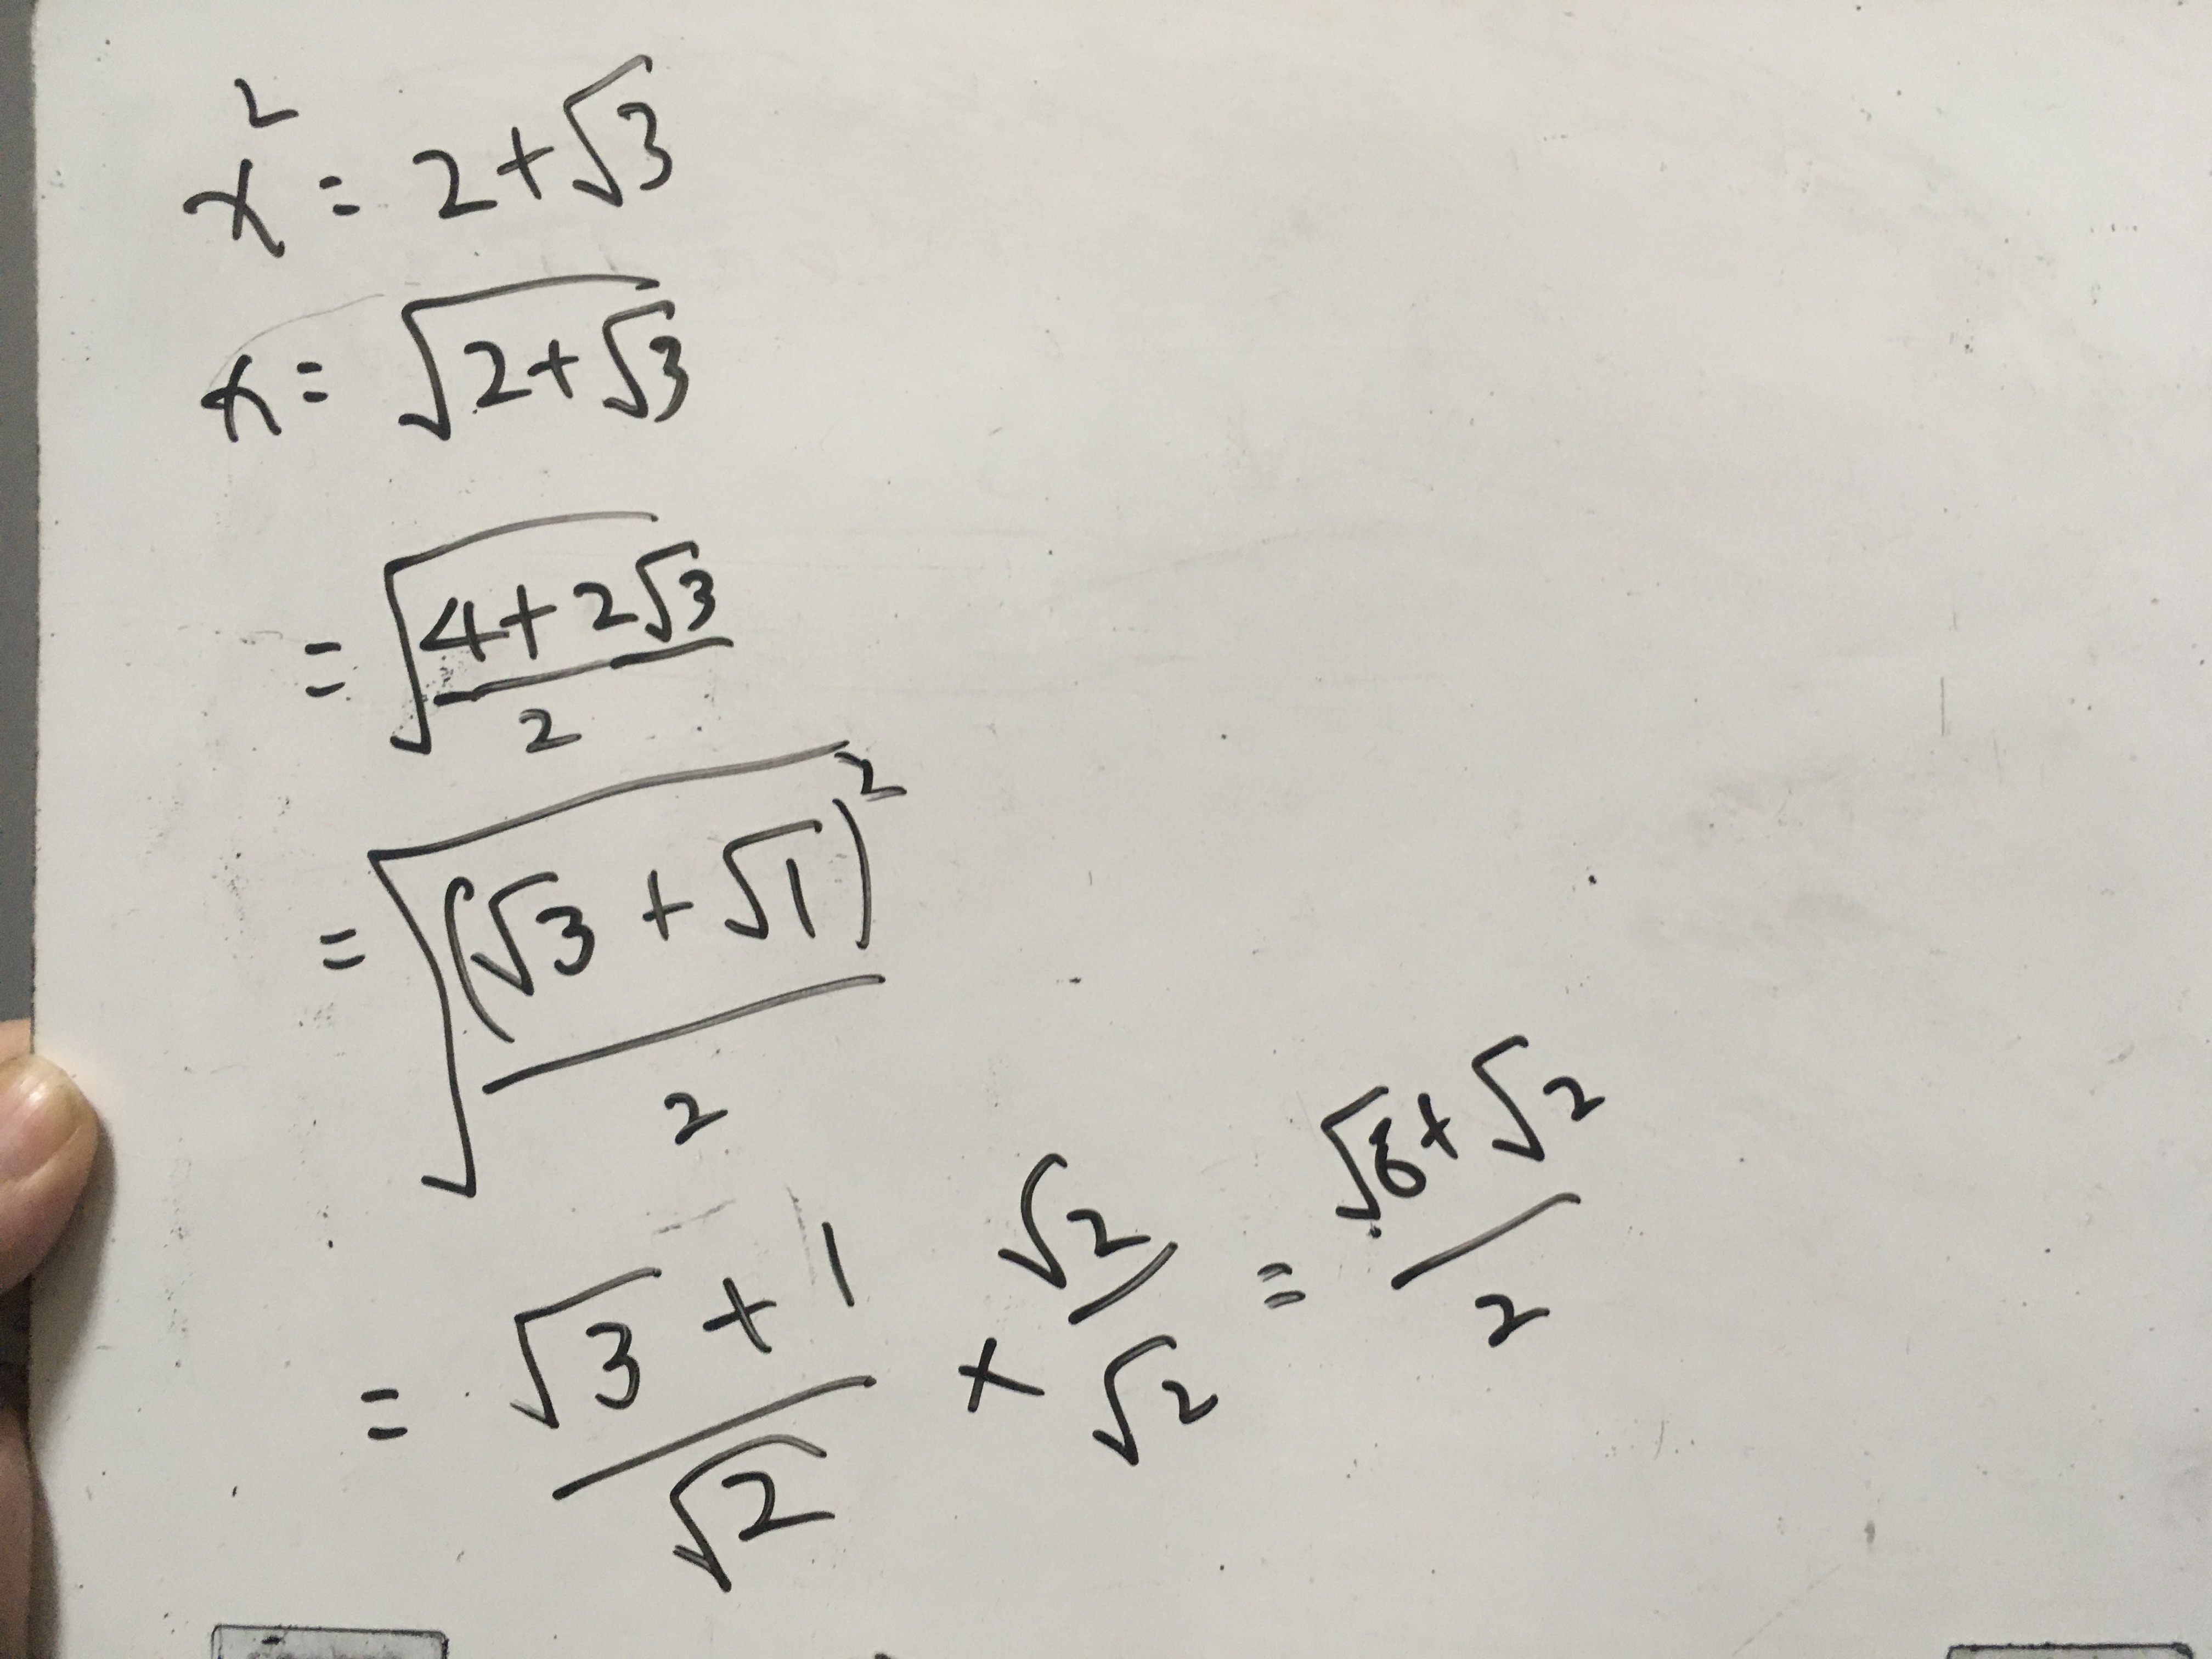 x² = 2+√3
x = √(2+√3)
= √((4+2√3)/2)
= √((√3 + √1)²/2)
= (√3 + 1)/√2 × √2/√2 = (√6+√2)/2